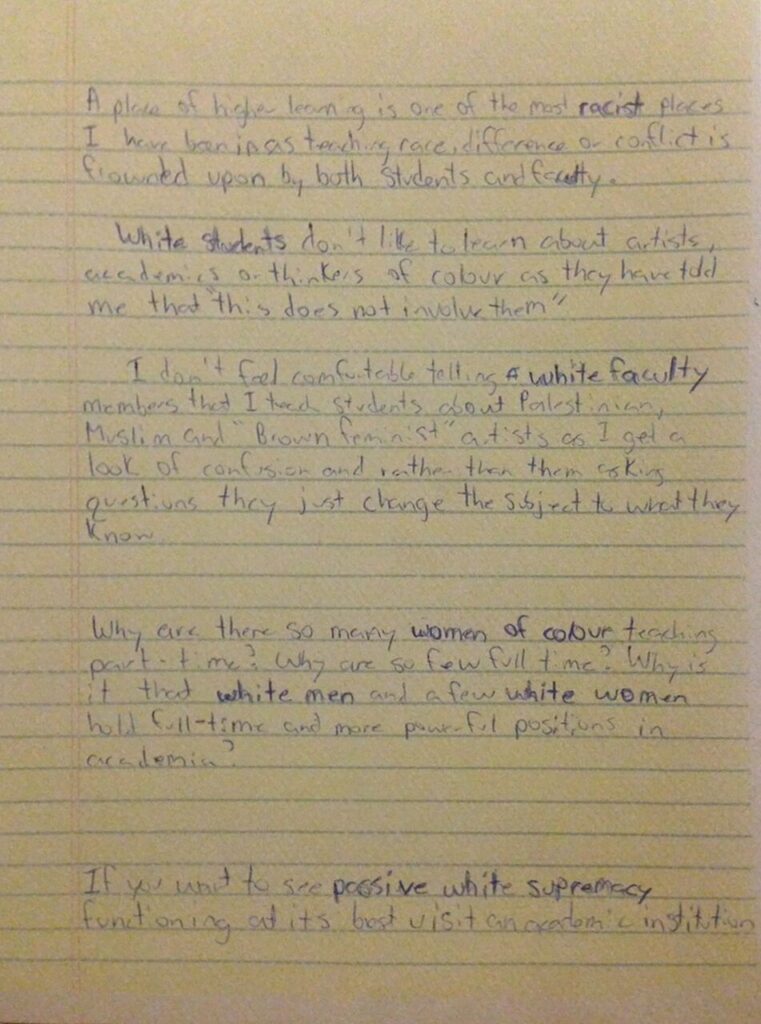 A place of higher learning is one of the most racist places
I have been in as teaching race, difference or conflict is
frowned upon by both students and faculty.
White students don't like to learn about artists,
academics or thinkers of colour as they have told
me that "this does not involve them"
I don't feel comfortable telling a white faculty
members that I teach students about Palestinian,
Muslim and "Brown feminist" artists as I get a
look of confusion and rather than them asking
questions they just change the subject to what they
know
Why are there so many women of colour teaching
part-time? Why are so few full time? Why is
it that white men and a few white women
hold full-time and more powerful positions in
academia?
If you want to see passive white supremacy
functioning at its best visit an academic institution